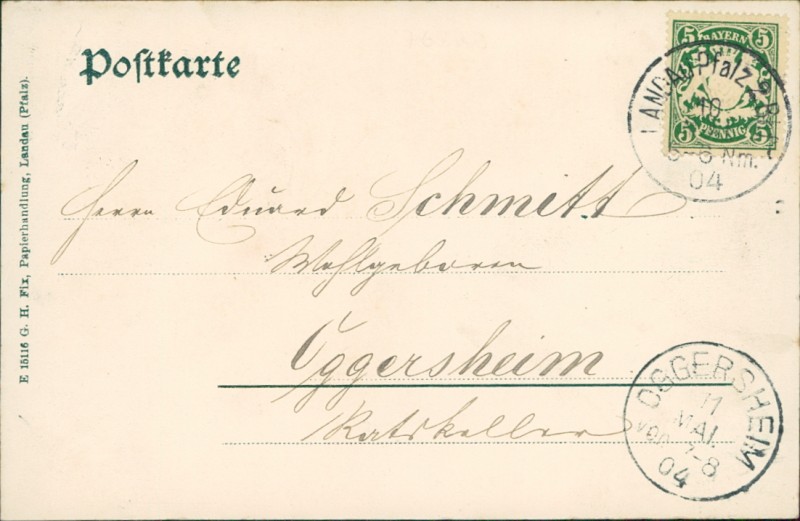 Postkarte
5 BAYERN 5
5 PFENNIG 5
LANDAU Pfalz 2 B.
10
5-6 Nm.
04
Herrn Eduard Schmitt
Wohlgeboren
Oggersheim
Ratskeller
OGGERSHEIM
11
MAI.
Vor. 7-8
04
E 15116 G. H. Fix, Papierhandlung, Landau (Pfalz).